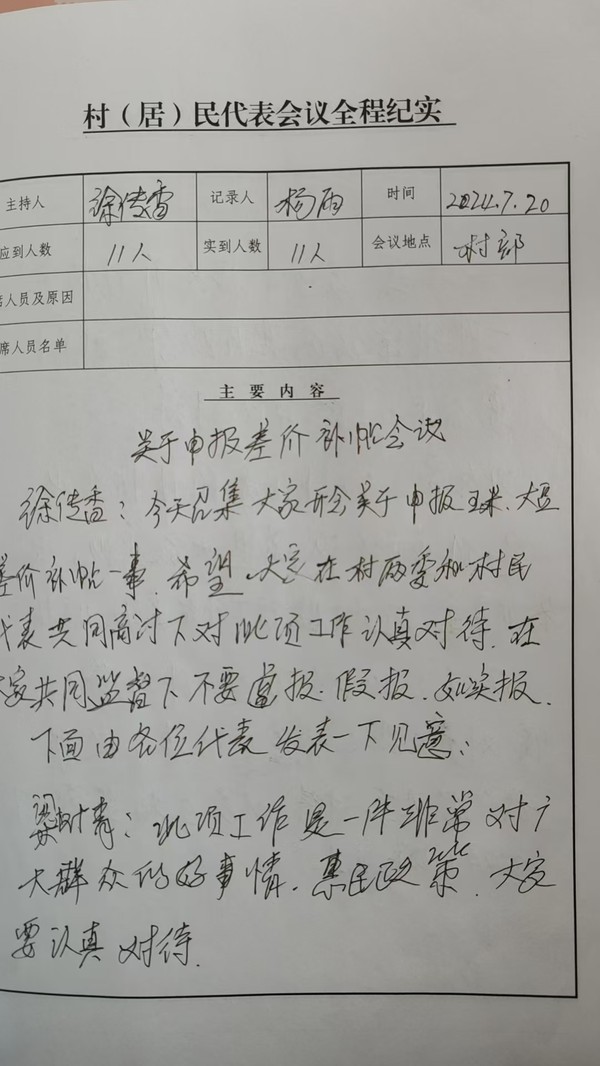 村（居）民代表会议全程纪实
主持人 徐传香 记录人 杨雨 时间 2024.7.20
应到人数 11人 实到人数 11人 会议地点 村部
席人员及原因
席人员名单
主要内容
关于申报差价补贴会议
徐传香：今天召集大家开会关于申报玉米、大豆
差价补贴一事，希望，大家在村两委和村民
代表共同商讨下对此项工作认真对待．在
大家共同监督下不要虚报．假报．如实报．
下面由各位代表发表一下见意：
青：此项工作是一件非常对广
大群众的好事情．惠民政策．大家
要认真对待．